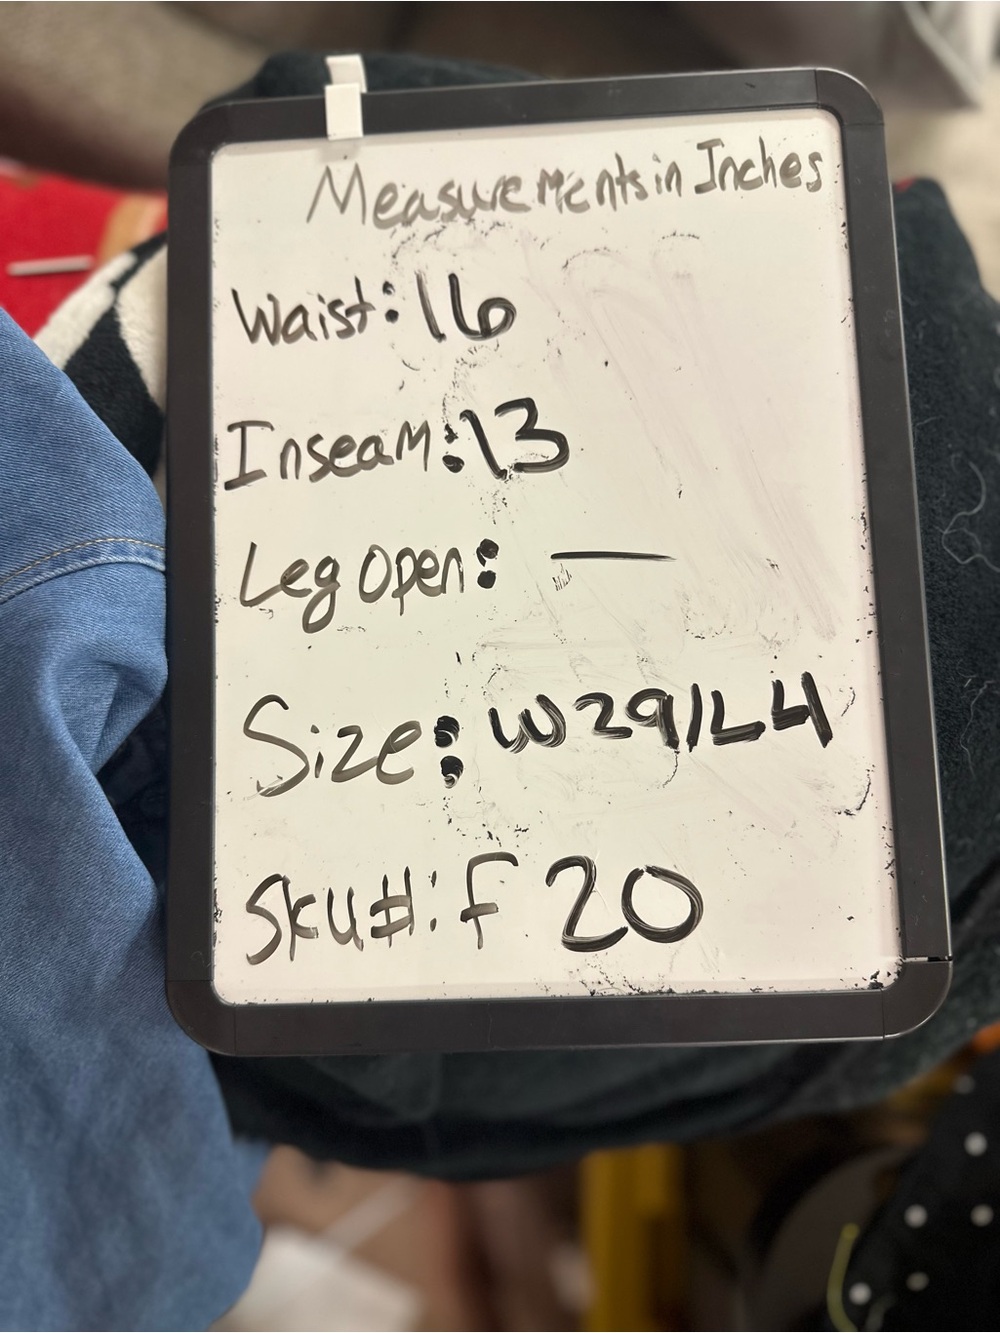 Measurements in Inches
Waist: 16
Inseam: 13
Leg Open: —
Size: W29/L4
Sku#: F 20